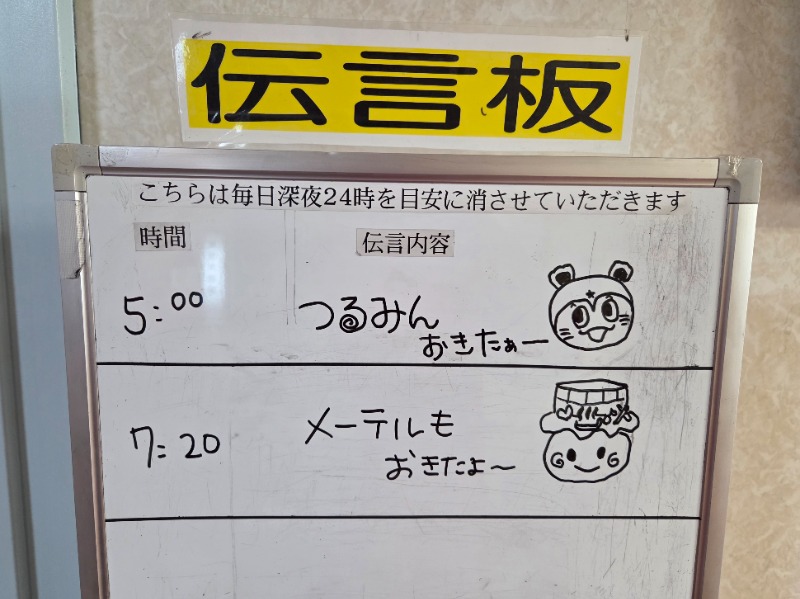 伝言板
こちらは毎日深夜24時を目安に消させていただきます
時間 伝言内容
5:00 つるみん
おきたぁー
7:20 メーテルも
おきたよ〜